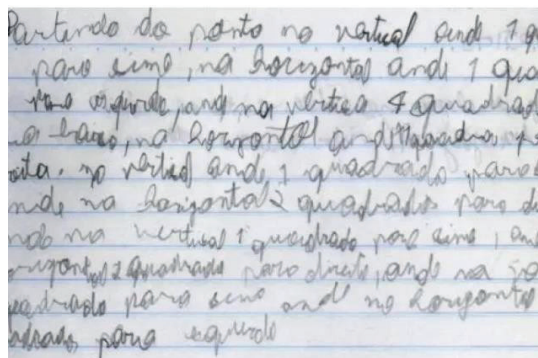 Partindo do ponto no vertical ande 1 qu
para sima, na horizontal ande 1 qua
para isquerda, ande na vertica 4 quadrad
a baixo, na horzontal ande 1 quadra
eita. no vertical ande 1 quadrado para
nde na horizontal 2 quadrados para di
nde na vertical 1 quadrado para sima, an
orizontal 2 quadrado para direita, ande na
uadrado para sima ande no horizontal
adrado para isquerda